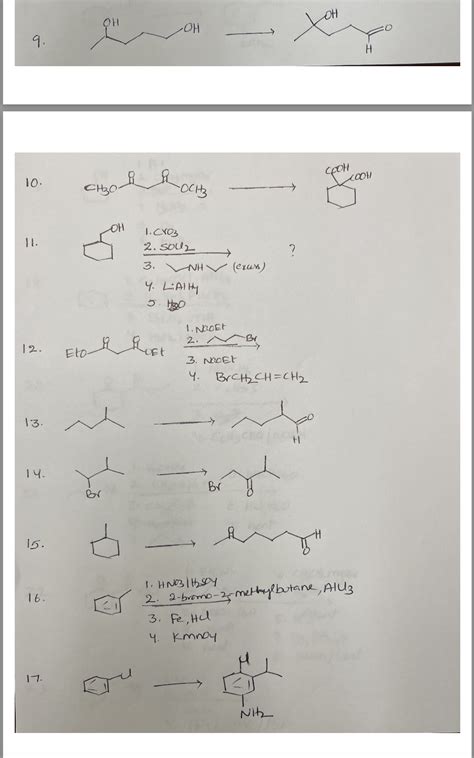 9. OH OH OH O H
10. CH3O O O OCH3 COOH COOH
11. OH 1. CrO3
2. SOCl2
3. NH (excess) ?
4. LiAlH4
5 H2O
12. EtO O O OEt 1. NaOEt
2. Br
3. NaOEt
4. BrCH2CH=CH2
13. O H
14. Br Br O
15. O O H
16. 1. HNO3/H2SO4
2. 2-bromo-2-methylbutane, AlCl3
3. Fe, HCl
4. KMnO4
17. NH2